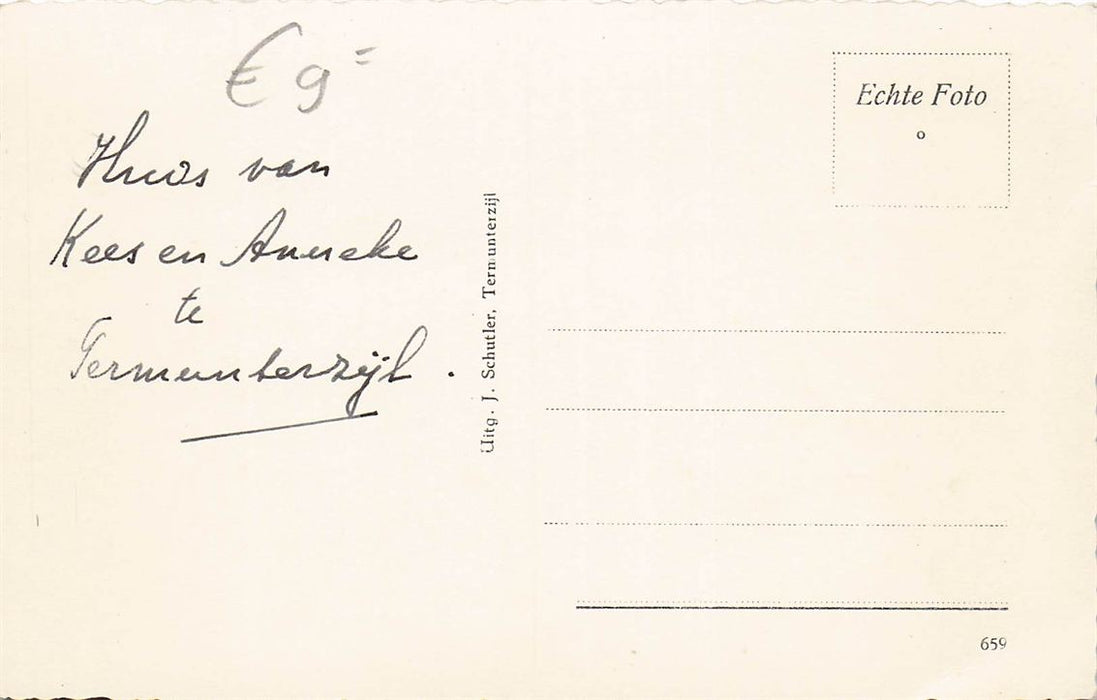 € 9=
Huis van
Kees en Anneke
te
Termunterzijl.
Uitg. J. Schutler, Termunterzijl
Echte Foto
659